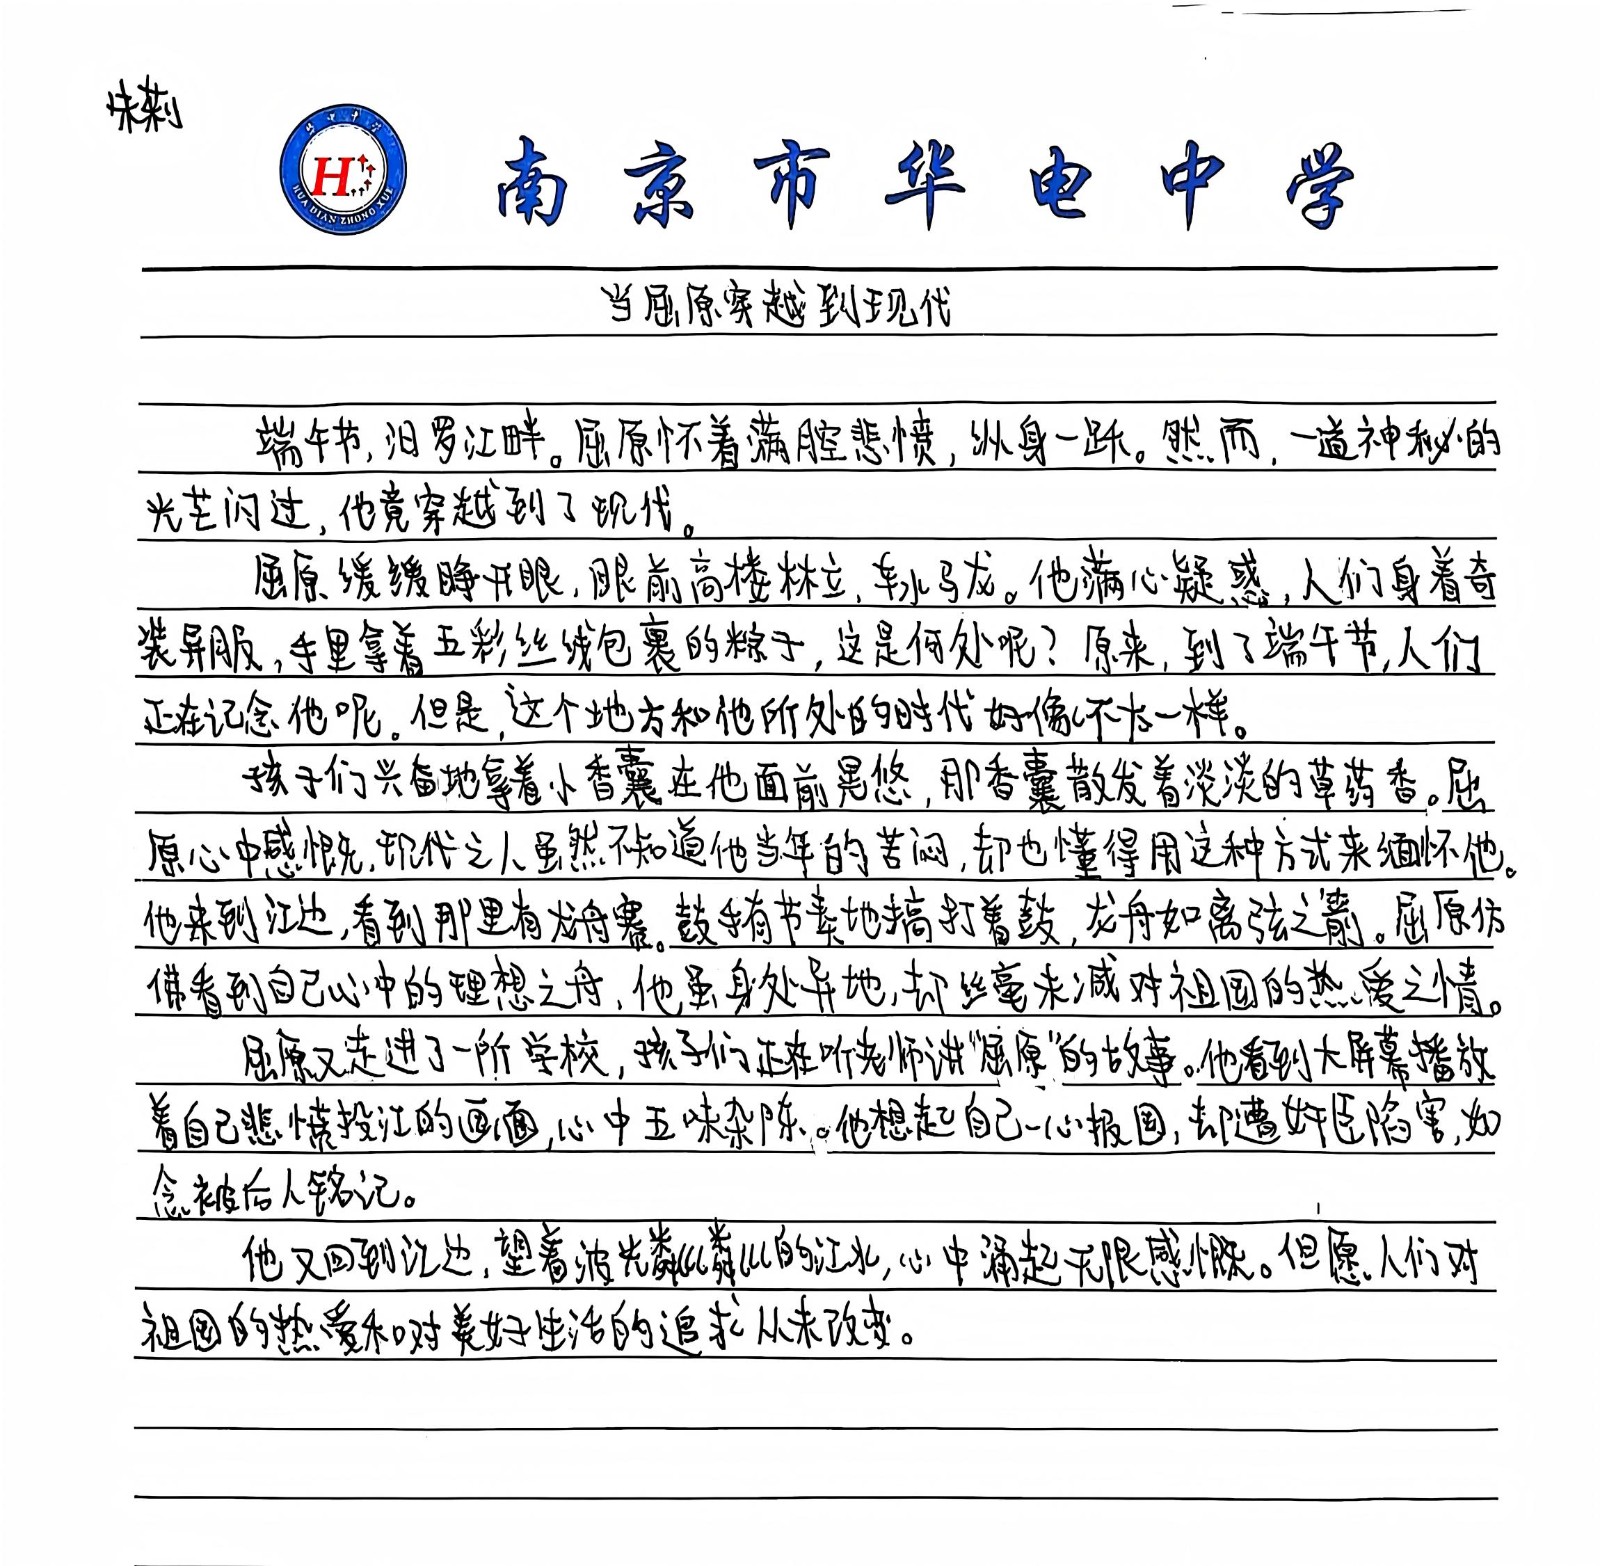 南京市华电中学
华电中学
HUA DIAN ZHONG XUE
H
当屈原穿越到现代
端午节,汨罗江畔。屈原怀着满腔悲愤,纵身一跃。然而,一道神秘的
光芒闪过,他竟穿越到了现代。
屈原缓缓睁开眼,眼前高楼林立,车水马龙。他满心疑惑,人们身着奇
装异服,手里拿着五彩丝线包裹的粽子,这是何处呢?原来,到了端午节,人们
正在记念他呢。但是,这个地方和他所处的时代好像不太一样。
孩子们兴奋地拿着小香囊在他面前晃悠,那香囊散发着淡淡的草药香。屈
原心中感慨,现代之人虽然不知道他当年的苦闷,却也懂得用这种方式来缅怀他。
他来到江边,看到那里有龙舟赛。鼓手有节奏地搞打着鼓,龙舟如离弦之箭。屈原仿
佛看到自己心中的理想之舟,他虽身处异地,却丝毫未减对祖国的热爱之情。
屈原又走进了一所学校,孩子们正在听老师讲“屈原”的故事。他看到大屏幕播放
着自己悲愤投江的画面,心中五味杂陈。他想起自己一心报国,却遭奸臣陷害,如
今被后人铭记。
他又回到江边,望着波光粼粼的江水,心中涌起无限感慨。但愿人们对
祖国的热爱和对美好生活的追求从未改变。